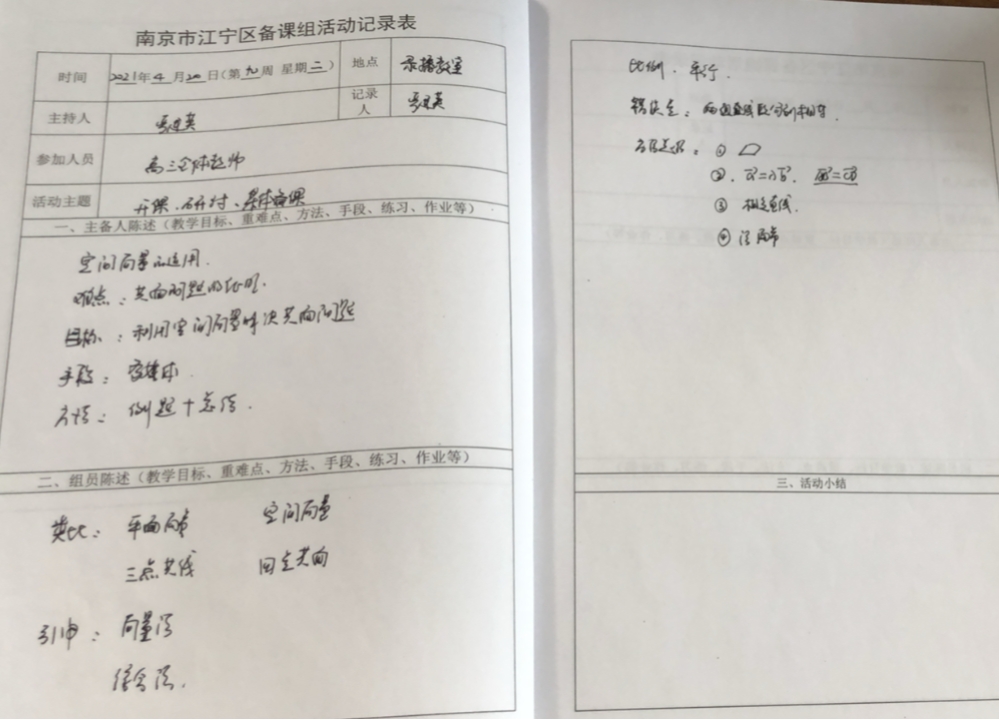 南京市江宁区备课组活动记录表
时间 2021年4月20日(第九周 星期二) 地点 录播教室
主持人 记录人
参加人员 高三全体教师
活动主题 开课、研讨、集体备课
一、主备人陈述(教学目标、重难点、方法、手段、练习、作业等)
空间向量的运用.
难点:共面问题的证明.
目标:利用空间向量解决共面问题
手段:多媒体.
方法:例题+总结.
二、组员陈述(教学目标、重难点、方法、手段、练习、作业等)
类比:平面向量 空间向量
三点共线 四点共面
引申:向量法
综合法.
比例.平行.
①
②.
③ 相交直线.
④ 法向量
三、活动小结